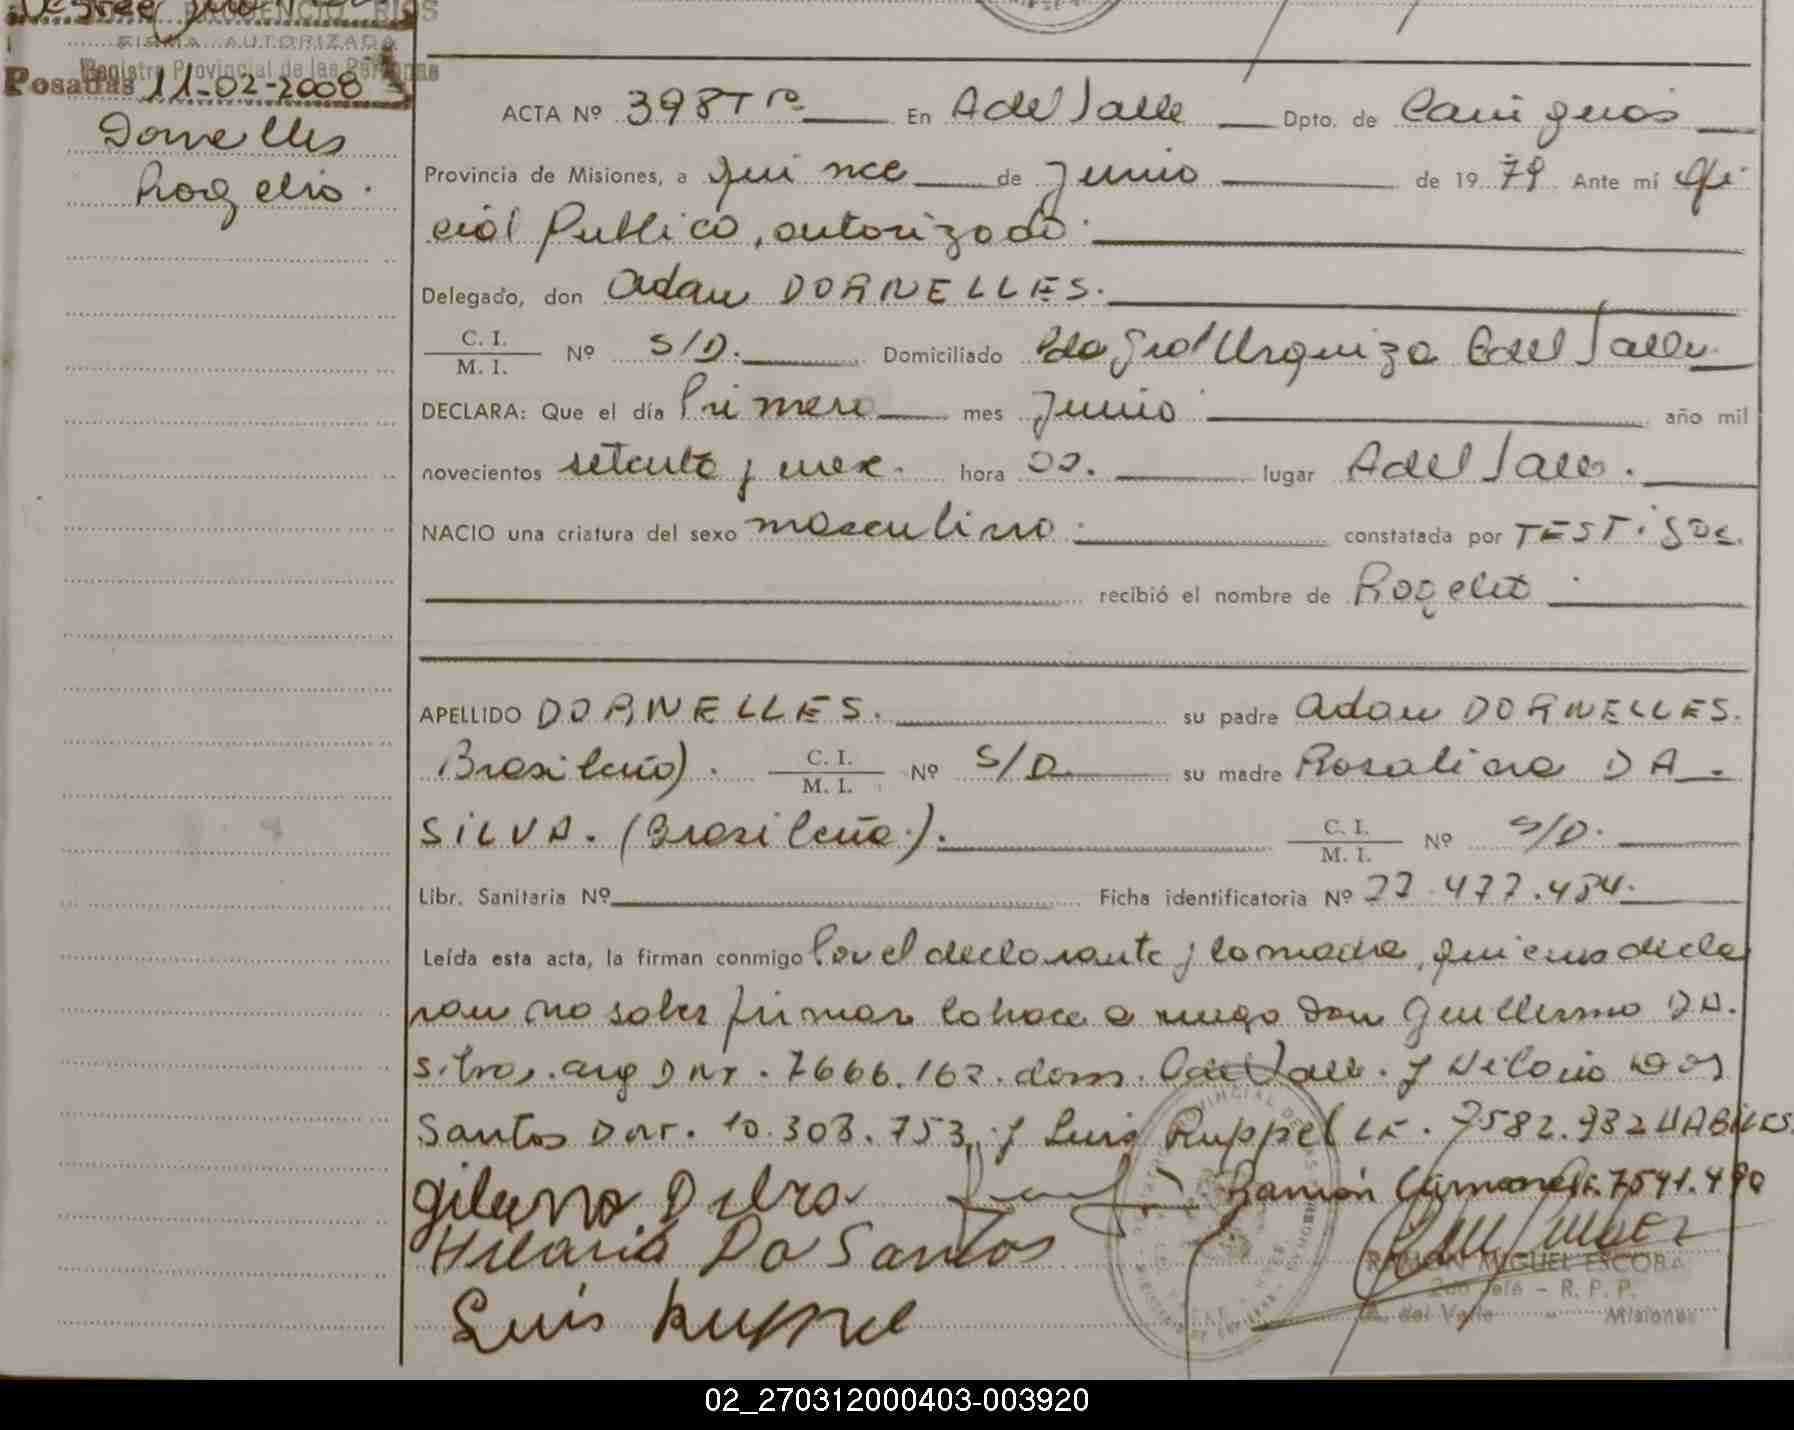 FIRMA AUTORIZADA
Registro Provincial de las Personas
Posadas 11-02-2008
Dornelles
Rogelio.
ACTA Nº 398 Tº En A del Valle Dpto. de Cainguas
Provincia de Misiones, a quince de Junio de 1979 Ante mí Ofi
cial Publico, autorizado.
Delegado, don Adan DORNELLES.
C. I.
M. I. Nº S/D. Domiciliado Pdo Gral Urquiza A del Valle
DECLARA: Que el día Primero mes Junio año mil
novecientos setenta y nueve. hora 22. lugar A del Valle.
NACIO una criatura del sexo masculino. constatada por TESTIGOS.
recibió el nombre de Rogelio.
APELLIDO DORNELLES. su padre Adan DORNELLES.
Brasileño). C. I.
M. I. Nº S/D. su madre Rosalina DA
SILVA. (Brasileña). C. I.
M. I. Nº S/D.
Libr. Sanitaria Nº Ficha identificatoria Nº 27.477.484.
Leída esta acta, la firman conmigo Por el declarante y la madre, quienes decla
ran no saber firmar lo hace a ruego Don Guillermo DA.
Silva, arg DNI. 7666.162. dom. A del Valle. y Hilario DOS
Santos DNI. 10.303.753, y Luis Ruppel LE. 7582.932 HABILES.
Ramón LE. 7541.490
Hilario Do Santos
Luis Ruppel
RAMON MIGUEL ESCOBAR
2do Jefe - R. P. P.
A. del Valle - Misiones
02_270312000403-003920